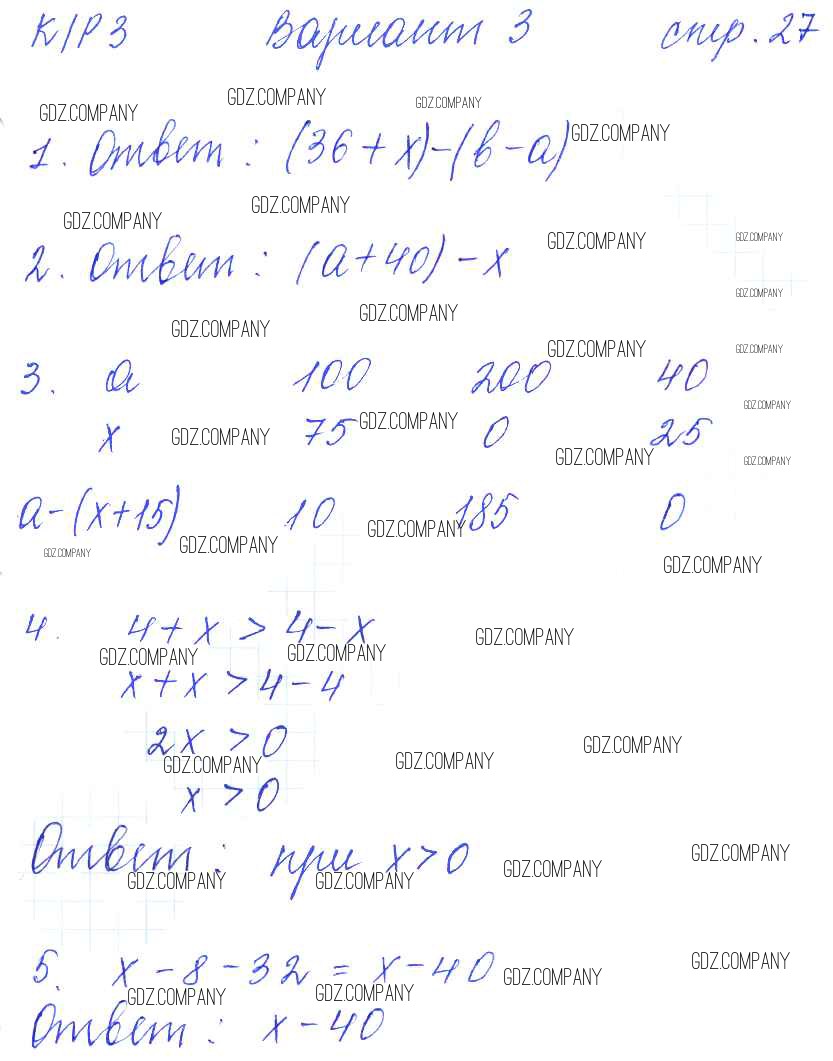 К/Р 3 Вариант 3 стр. 27
GDZ.COMPANY GDZ.COMPANY GDZ.COMPANY
1. Ответ : (36 + x) - (b - a) GDZ.COMPANY
GDZ.COMPANY GDZ.COMPANY
2. Ответ : (a + 40) - x GDZ.COMPANY GDZ.COMPANY
GDZ.COMPANY
GDZ.COMPANY GDZ.COMPANY
GDZ.COMPANY GDZ.COMPANY
3. a 100 200 40
GDZ.COMPANY
x GDZ.COMPANY 75 GDZ.COMPANY 0 25
GDZ.COMPANY GDZ.COMPANY
a - (x + 15) 10 GDZ.COMPANY 185 0
GDZ.COMPANY GDZ.COMPANY GDZ.COMPANY
4. 4 + x > 4 - x GDZ.COMPANY
GDZ.COMPANY GDZ.COMPANY
x + x > 4 - 4
2x > 0 GDZ.COMPANY
GDZ.COMPANY GDZ.COMPANY
x > 0
Ответ : при x > 0 GDZ.COMPANY GDZ.COMPANY
GDZ.COMPANY GDZ.COMPANY
5. x - 8 - 32 = x - 40 GDZ.COMPANY GDZ.COMPANY
GDZ.COMPANY GDZ.COMPANY
Ответ : x - 40